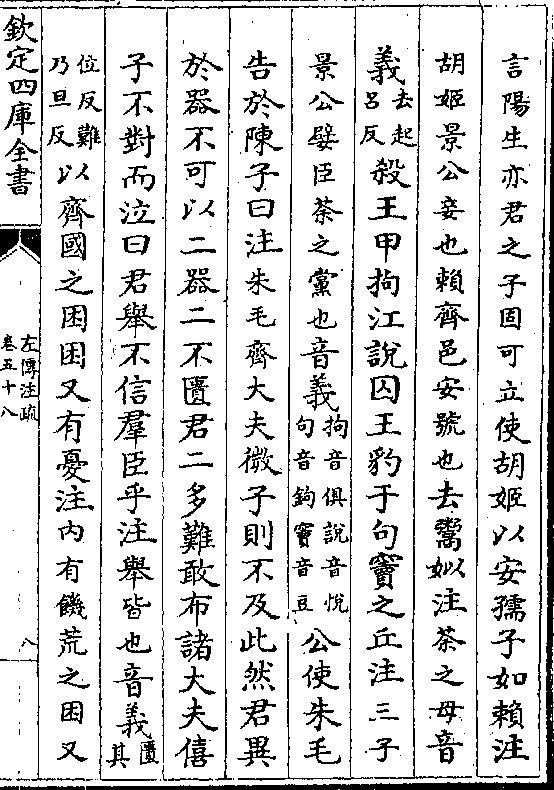 言陽生亦君之子固可立使胡姬以安孺子如賴注
胡姬景公妾也賴齊邑安號也去鬻姒注荼之母音
義去起呂反殺王甲拘江說囚王豹于句竇之丘注三子
景公嬖臣荼之黨也音義拘音俱說音悅句音鉤竇音豆公使朱毛
告於陳子曰注朱毛齊大夫微子則不及此然君異
於器不可以二器二不匱君二多難敢布諸大夫僖
子不對而泣曰君舉不信羣臣乎注舉皆也音義匱其
位反難乃旦反以齊國之困困又有憂注内有饑荒之困又
欽定四庫全書
左傳注疏
卷五十八
八